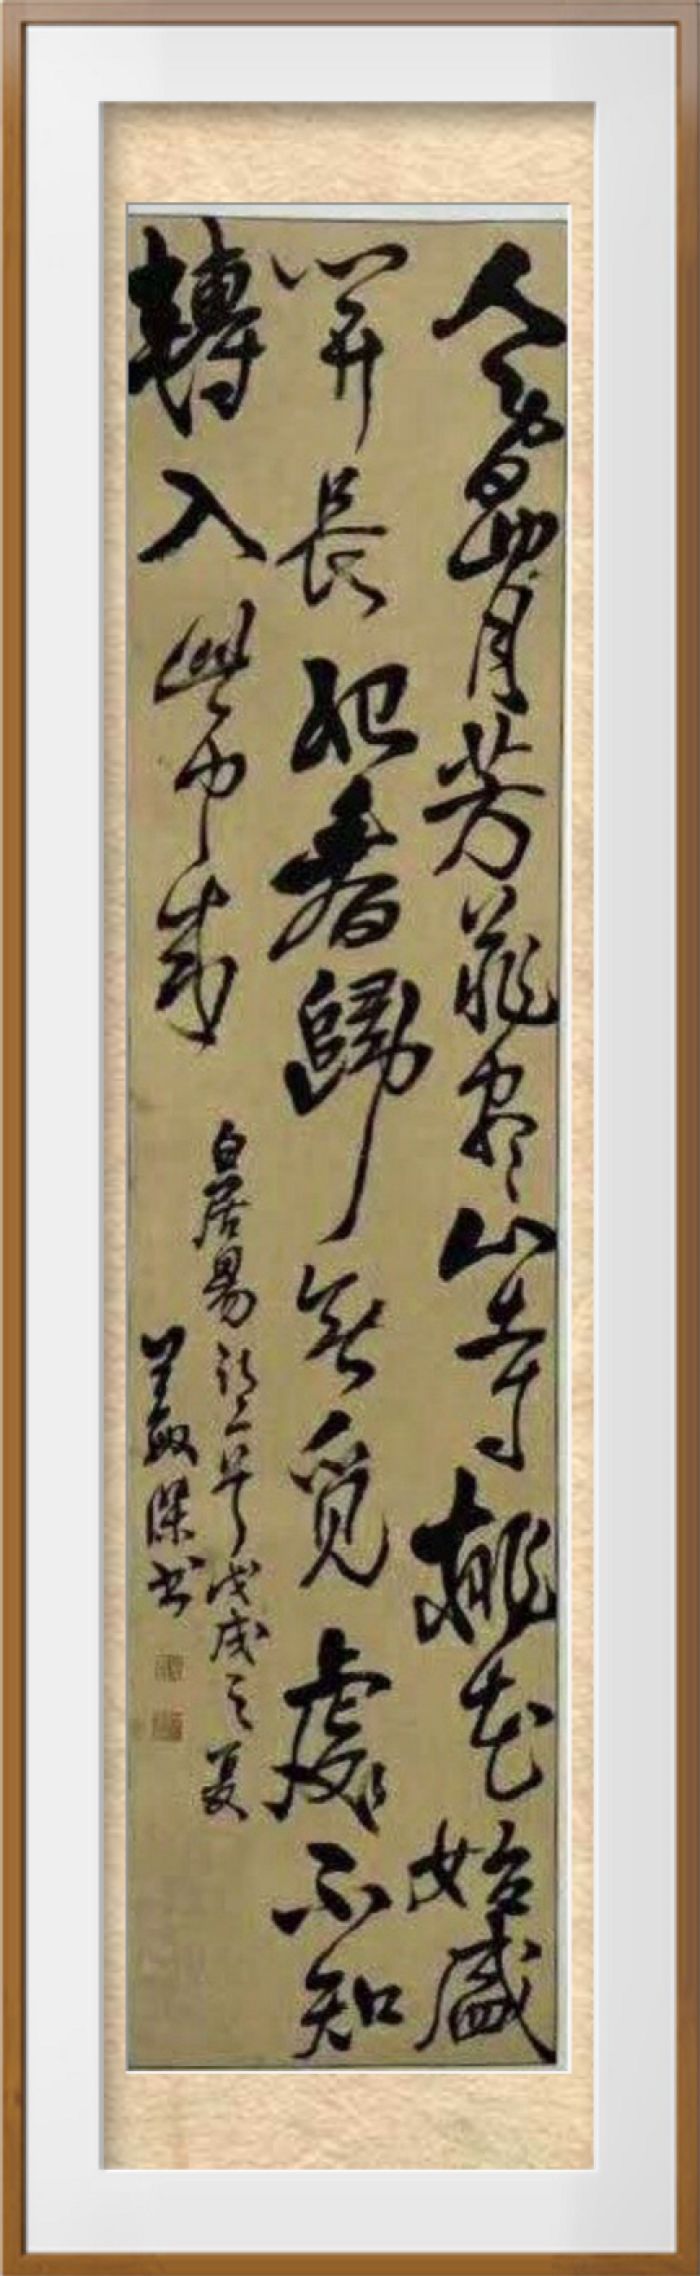 人間四月芳菲盡山寺桃花始盛
開長恨春歸無覓處不知
轉入此中來
白居易詩一首戊戌之夏
敏深書